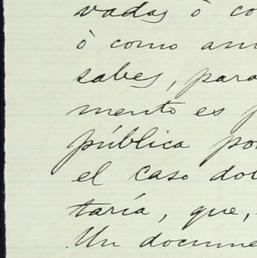 vadas ò co
ò como am
sabes, para
mento es p
pública po
el caso do
taría, que,
Un docume